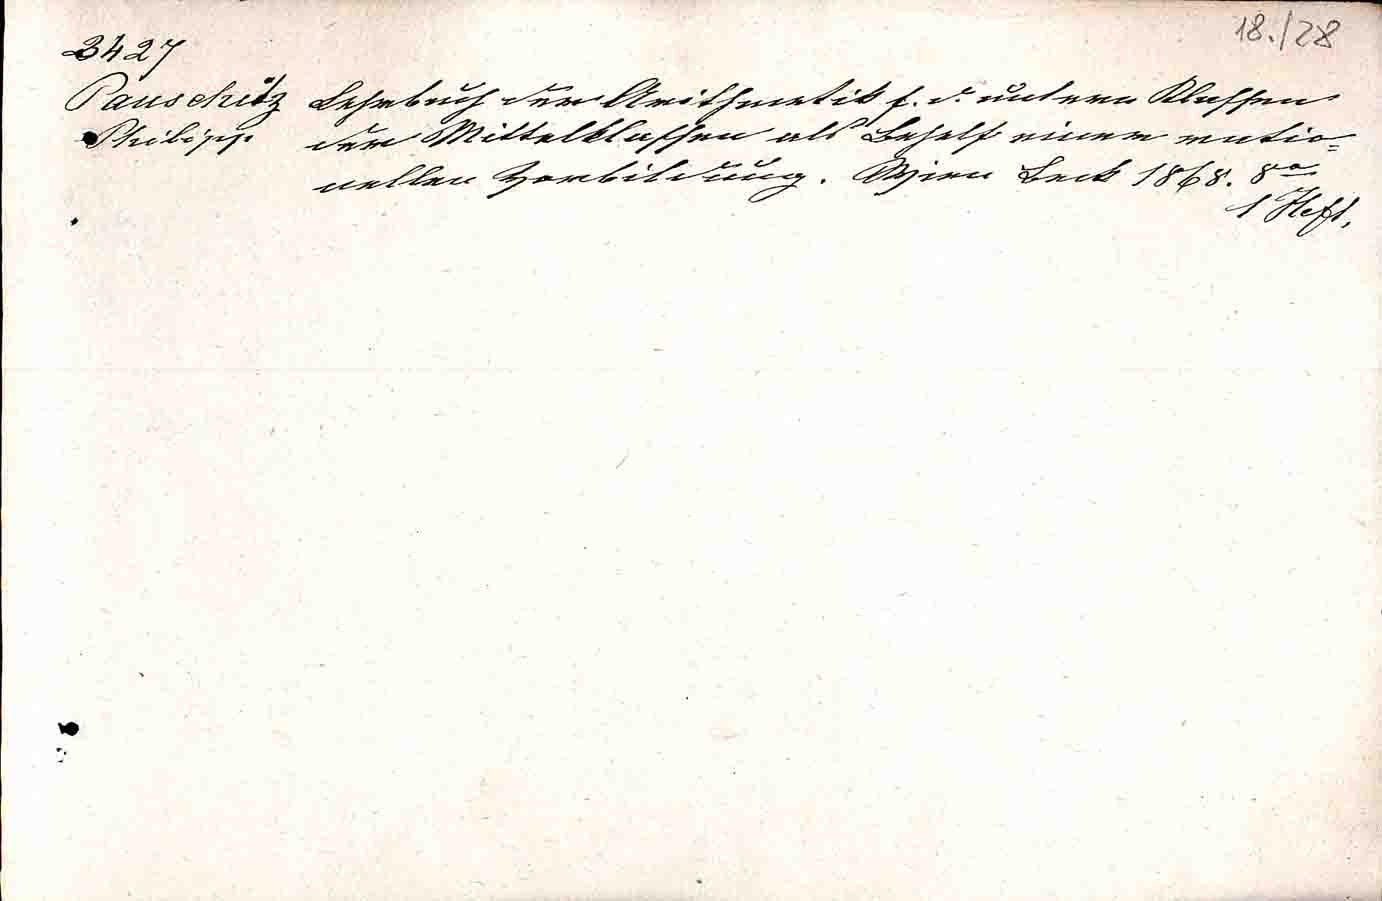 18./28
3427
Pauschitz Lehrbuch der Arithmetik f. d. untern Klassen
Philipp. der Mittelklassen als Behelf einer ratio=
nellen Vorbildung. Wien Beck 1868. 8o
1 Heft.